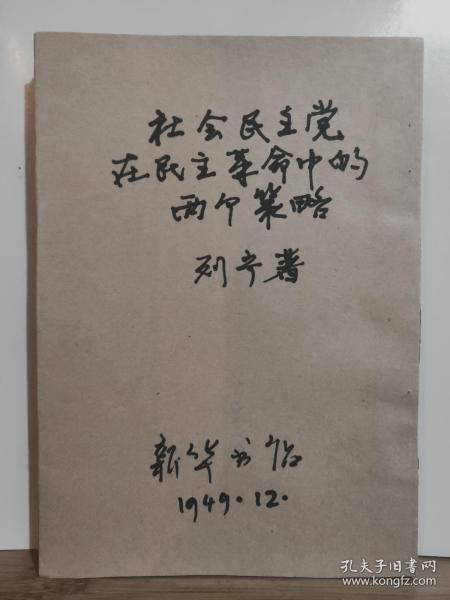 社会民主党
在民主革命中的
两个策略
列宁著
新华书店
1949.12.
孔夫子旧书网
www.kongfz.com